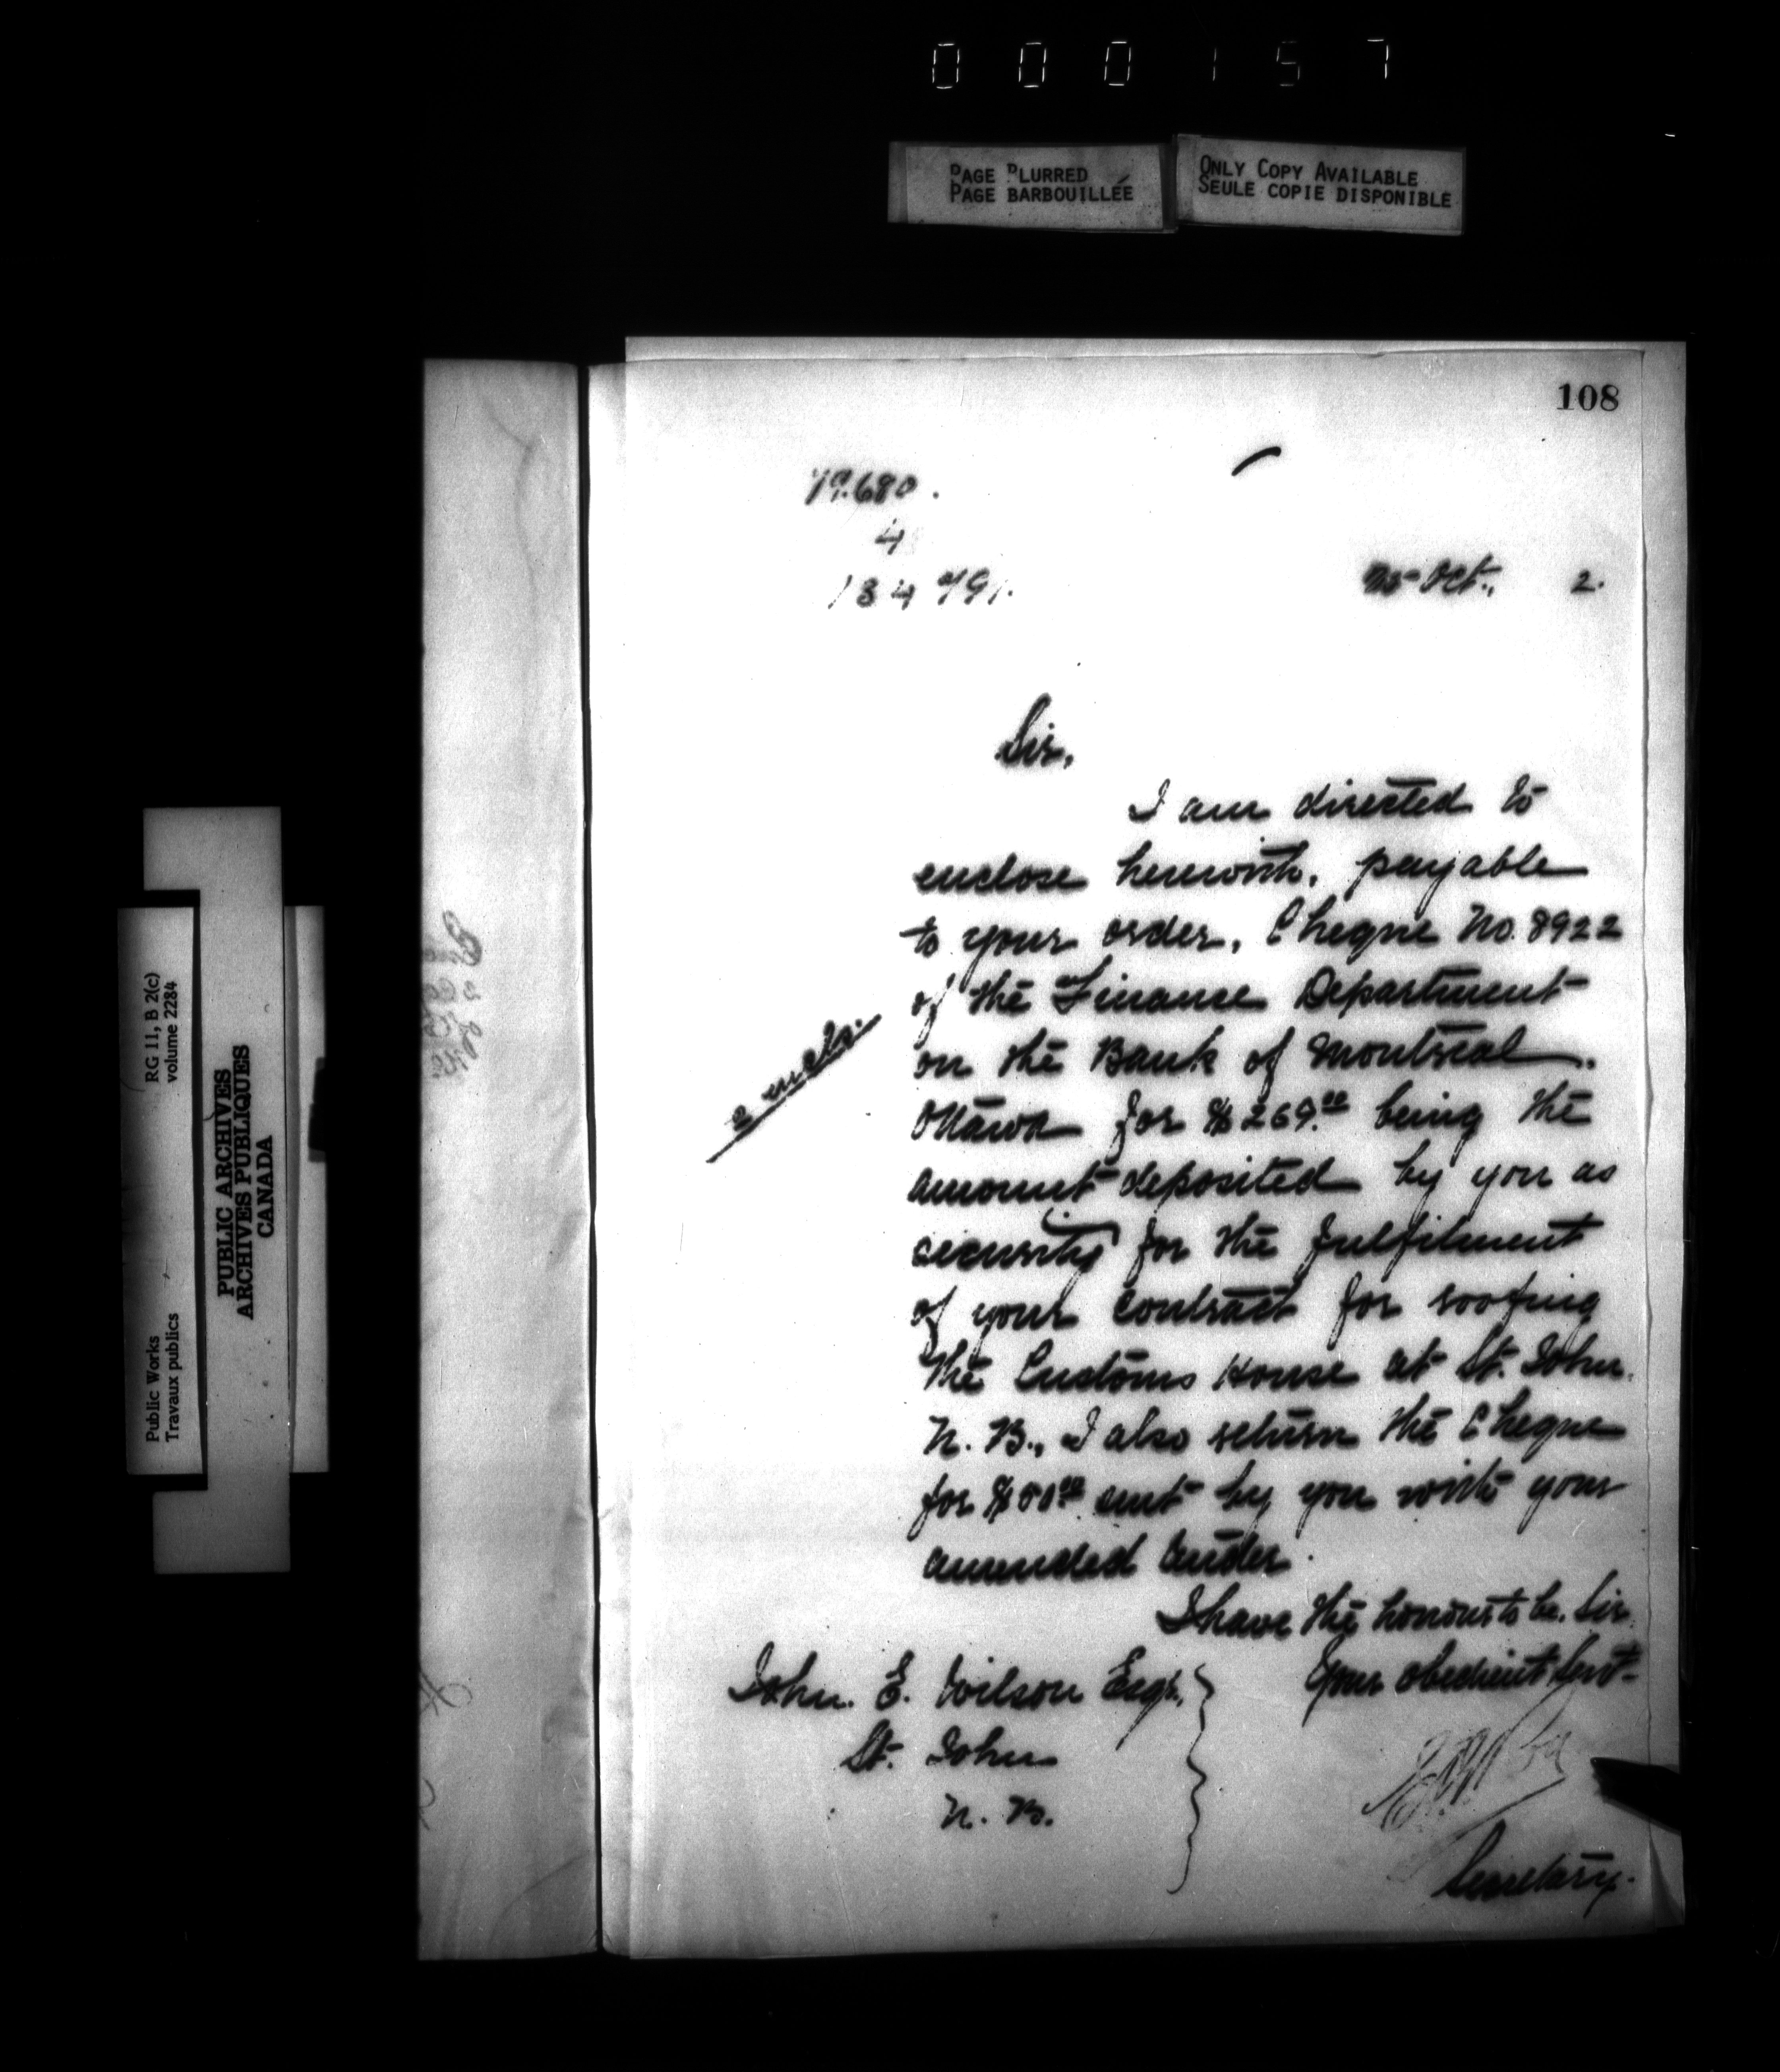 000157
PAGE BLURRED
PAGE BARBOUILLÉE
ONLY COPY AVAILABLE
SEULE COPIE DISPONIBLE
108
79.680.
4
134791.
Oct., 2.
Sir,
I am directed to
enclose herewith, payable
to your order, Cheque No. 8922
of the Finance Department
on the Bank of Montreal,
Ottawa for $269.00 being the
amount deposited by you as
security for the fulfilment
of your contract for roofing
the Customs House at St. John,
N. B., I also return the Cheque
for $50.00 sent by you with your
amended tender.
2 encls.
I have the honour to be, Sir
Your obedient Servt.
John. E. Wilson Esqr.
St. John
N. B.
Secretary.
RG 11, B 2(c)
volume 2284
Public Works
Travaux publics
PUBLIC ARCHIVES
ARCHIVES PUBLIQUES
CANADA